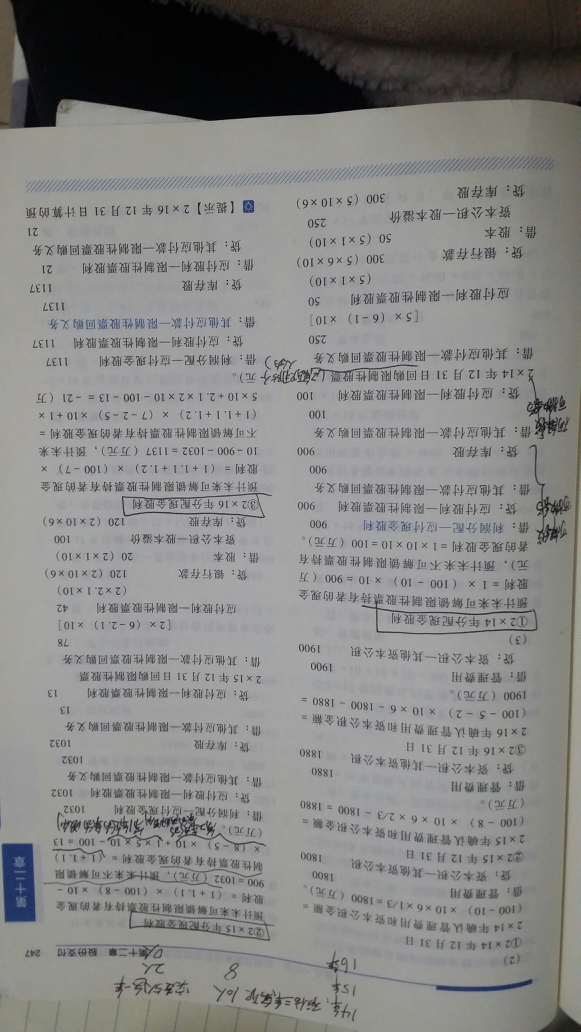 第十二章 股份支付 247
(2)
①2×14年12月31日
2×14年确认管理费用和资本公积金额=
(100-10)×10×6×1/3=1800(万元)。
借：管理费用 1800
贷：资本公积—其他资本公积 1800
②2×15年12月31日
2×15年确认管理费用和资本公积金额=
(100-8)×10×6×2/3-1800=1880
(万元)。
借：管理费用 1880
贷：资本公积—其他资本公积 1880
③2×16年12月31日
2×16年确认管理费用和资本公积金额=
(100-5-2)×10×6-1800-1880=
1900(万元)。
借：管理费用 1900
贷：资本公积—其他资本公积 1900
(3)
①2×14年分配现金股利
预计未来可解锁限制性股票持有者的现金
股利=1×(100-10)×10=900(万
元)，预计未来不可解锁限制性股票持有
者的现金股利=1×10×10=100(万元)。
借：利润分配—应付现金股利 900
贷：应付股利—限制性股票股利 900
借：其他应付款—限制性股票回购义务
900
贷：库存股 900
借：其他应付款—限制性股票回购义务
100
贷：应付股利—限制性股票股利 100
2×14年12月31日回购限制性股票
借：其他应付款—限制性股票回购义务
250
[5×(6-1)×10]
应付股利—限制性股票股利 50
(5×1×10)
贷：银行存款 300(5×6×10)
借：股本 50(5×1×10)
资本公积—股本溢价 250
贷：库存股 300(5×10×6)
②2×15年分配现金股利
预计未来可解锁限制性股票持有者的现金
股利=(1+1.1)×(100-8)×10-
900=1032(万元)，预计未来不可解锁限
制性股票持有者的现金股利=(1+1.1)
×(8-5)×10+1×5×10-100=13
(万元)。
借：利润分配—应付现金股利 1032
贷：应付股利—限制性股票股利 1032
借：其他应付款—限制性股票回购义务
1032
贷：库存股 1032
借：其他应付款—限制性股票回购义务
13
贷：应付股利—限制性股票股利 13
2×15年12月31日回购限制性股票
借：其他应付款—限制性股票回购义务
78
[2×(6-2.1)×10]
应付股利—限制性股票股利 42
(2×2.1×10)
贷：银行存款 120(2×10×6)
借：股本 20(2×1×10)
资本公积—股本溢价 100
贷：库存股 120(2×10×6)
③2×16年分配现金股利
预计未来可解锁限制性股票持有者的现金
股利=(1+1.1+1.2)×(100-7)×
10-900-1032=1137(万元)，预计未来
不可解锁限制性股票持有者的现金股利=
(1+1.1+1.2)×(7-2-5)×10+1×
5×10+2.1×2×10-100-13=-21(万
元)。
借：利润分配—应付现金股利 1137
贷：应付股利—限制性股票股利 1137
借：其他应付款—限制性股票回购义务
1137
贷：库存股 1137
借：应付股利—限制性股票股利 21
贷：其他应付款—限制性股票回购义务
21
【提示】2×16年12月31日计算的预
第十二章
14年
10人
15年
8
2人
16年